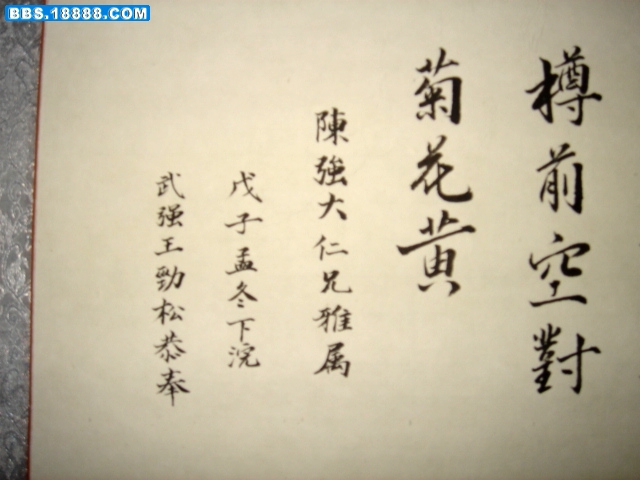 BBS.18888.COM
樽前空對
菊花黃
陳強大仁兄雅属
戊子孟冬下浣
武强王勁松恭奉